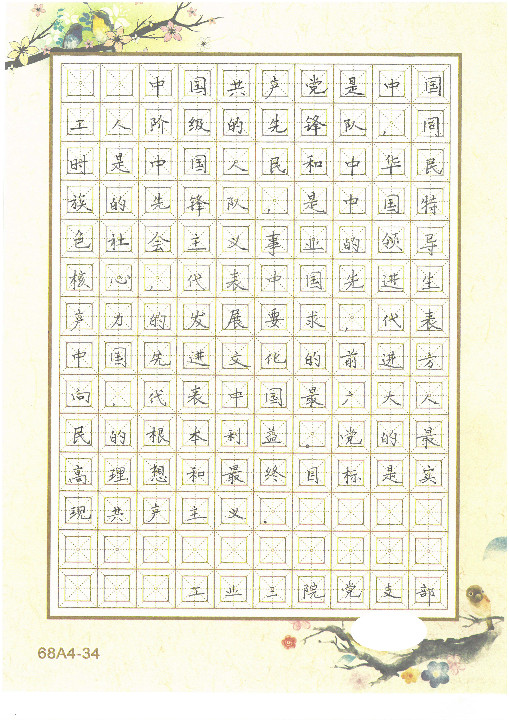 中国共产党是中国
工人阶级的先锋队，同
时是中国人民和中华民
族的先锋队，是中国特
色社会主义事业的领导
核心，代表中国先进生
产力的发展要求，代表
中国先进文化的前进方
向，代表中国最广大人
民的根本利益。党的最
高理想和最终目标是实
现共产主义。
工业三院党支部
68A4-34